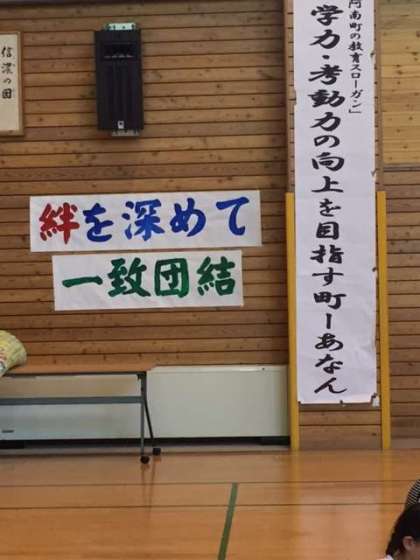 阿南町の教育スローガン」
学力・考動力の向上を目指す町ーあなん
信濃の国
絆を深めて
一致団結